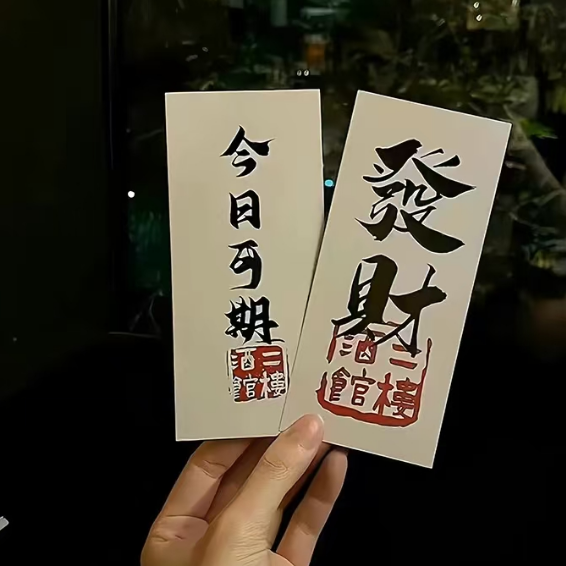 今日可期
二樓
酒館
發財
二樓
酒館